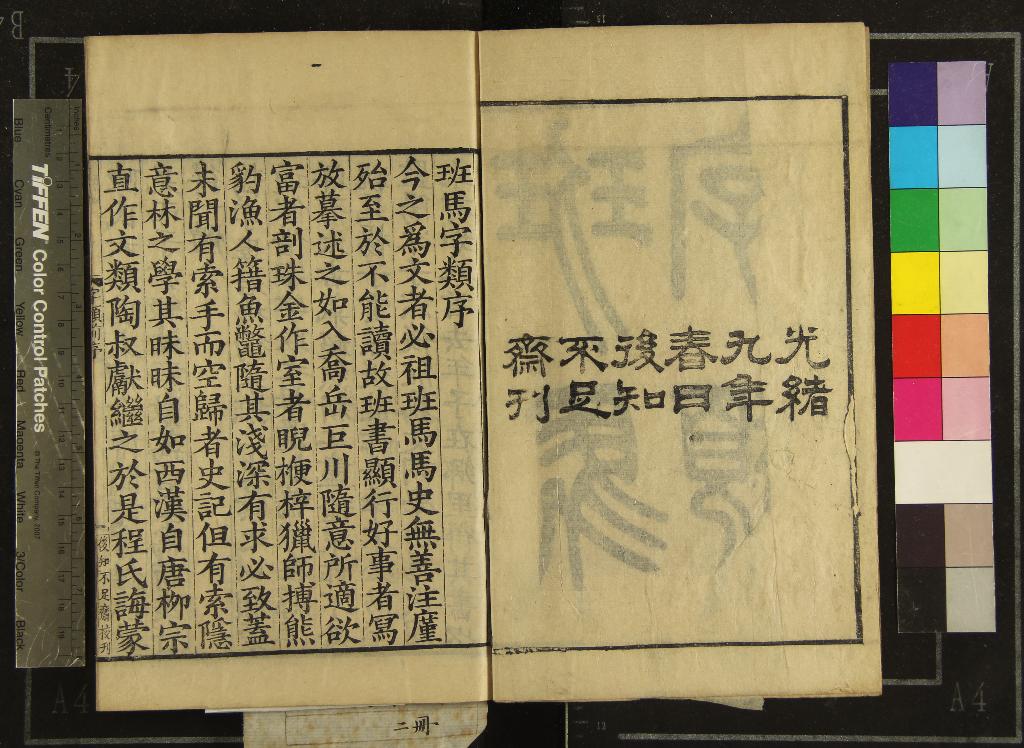 光緒
九年
春日
後知
不足
齋刊
班馬字類序
今之爲文者必祖班馬馬史無善注廑
殆至於不能讀故班書顯行好事者寫
放摹述之如入喬岳巨川隨意所適欲
富者剖珠金作室者睨楩梓獵師搏熊
豹漁人籍魚鼈隨其淺深有求必致蓋
未聞有索手而空歸者史記但有索隱
意林之學其昧昧自如西漢自唐柳宗
直作文類陶叔獻繼之於是程氏誨蒙
後知不足齋校刊
二冊
TIFFEN Color Control Patches
© The Tiffen Company, 2007
Centimetres
Inches
Blue
Cyan
Green
Yellow
Red
Magenta
White
3/Color
Black
A4